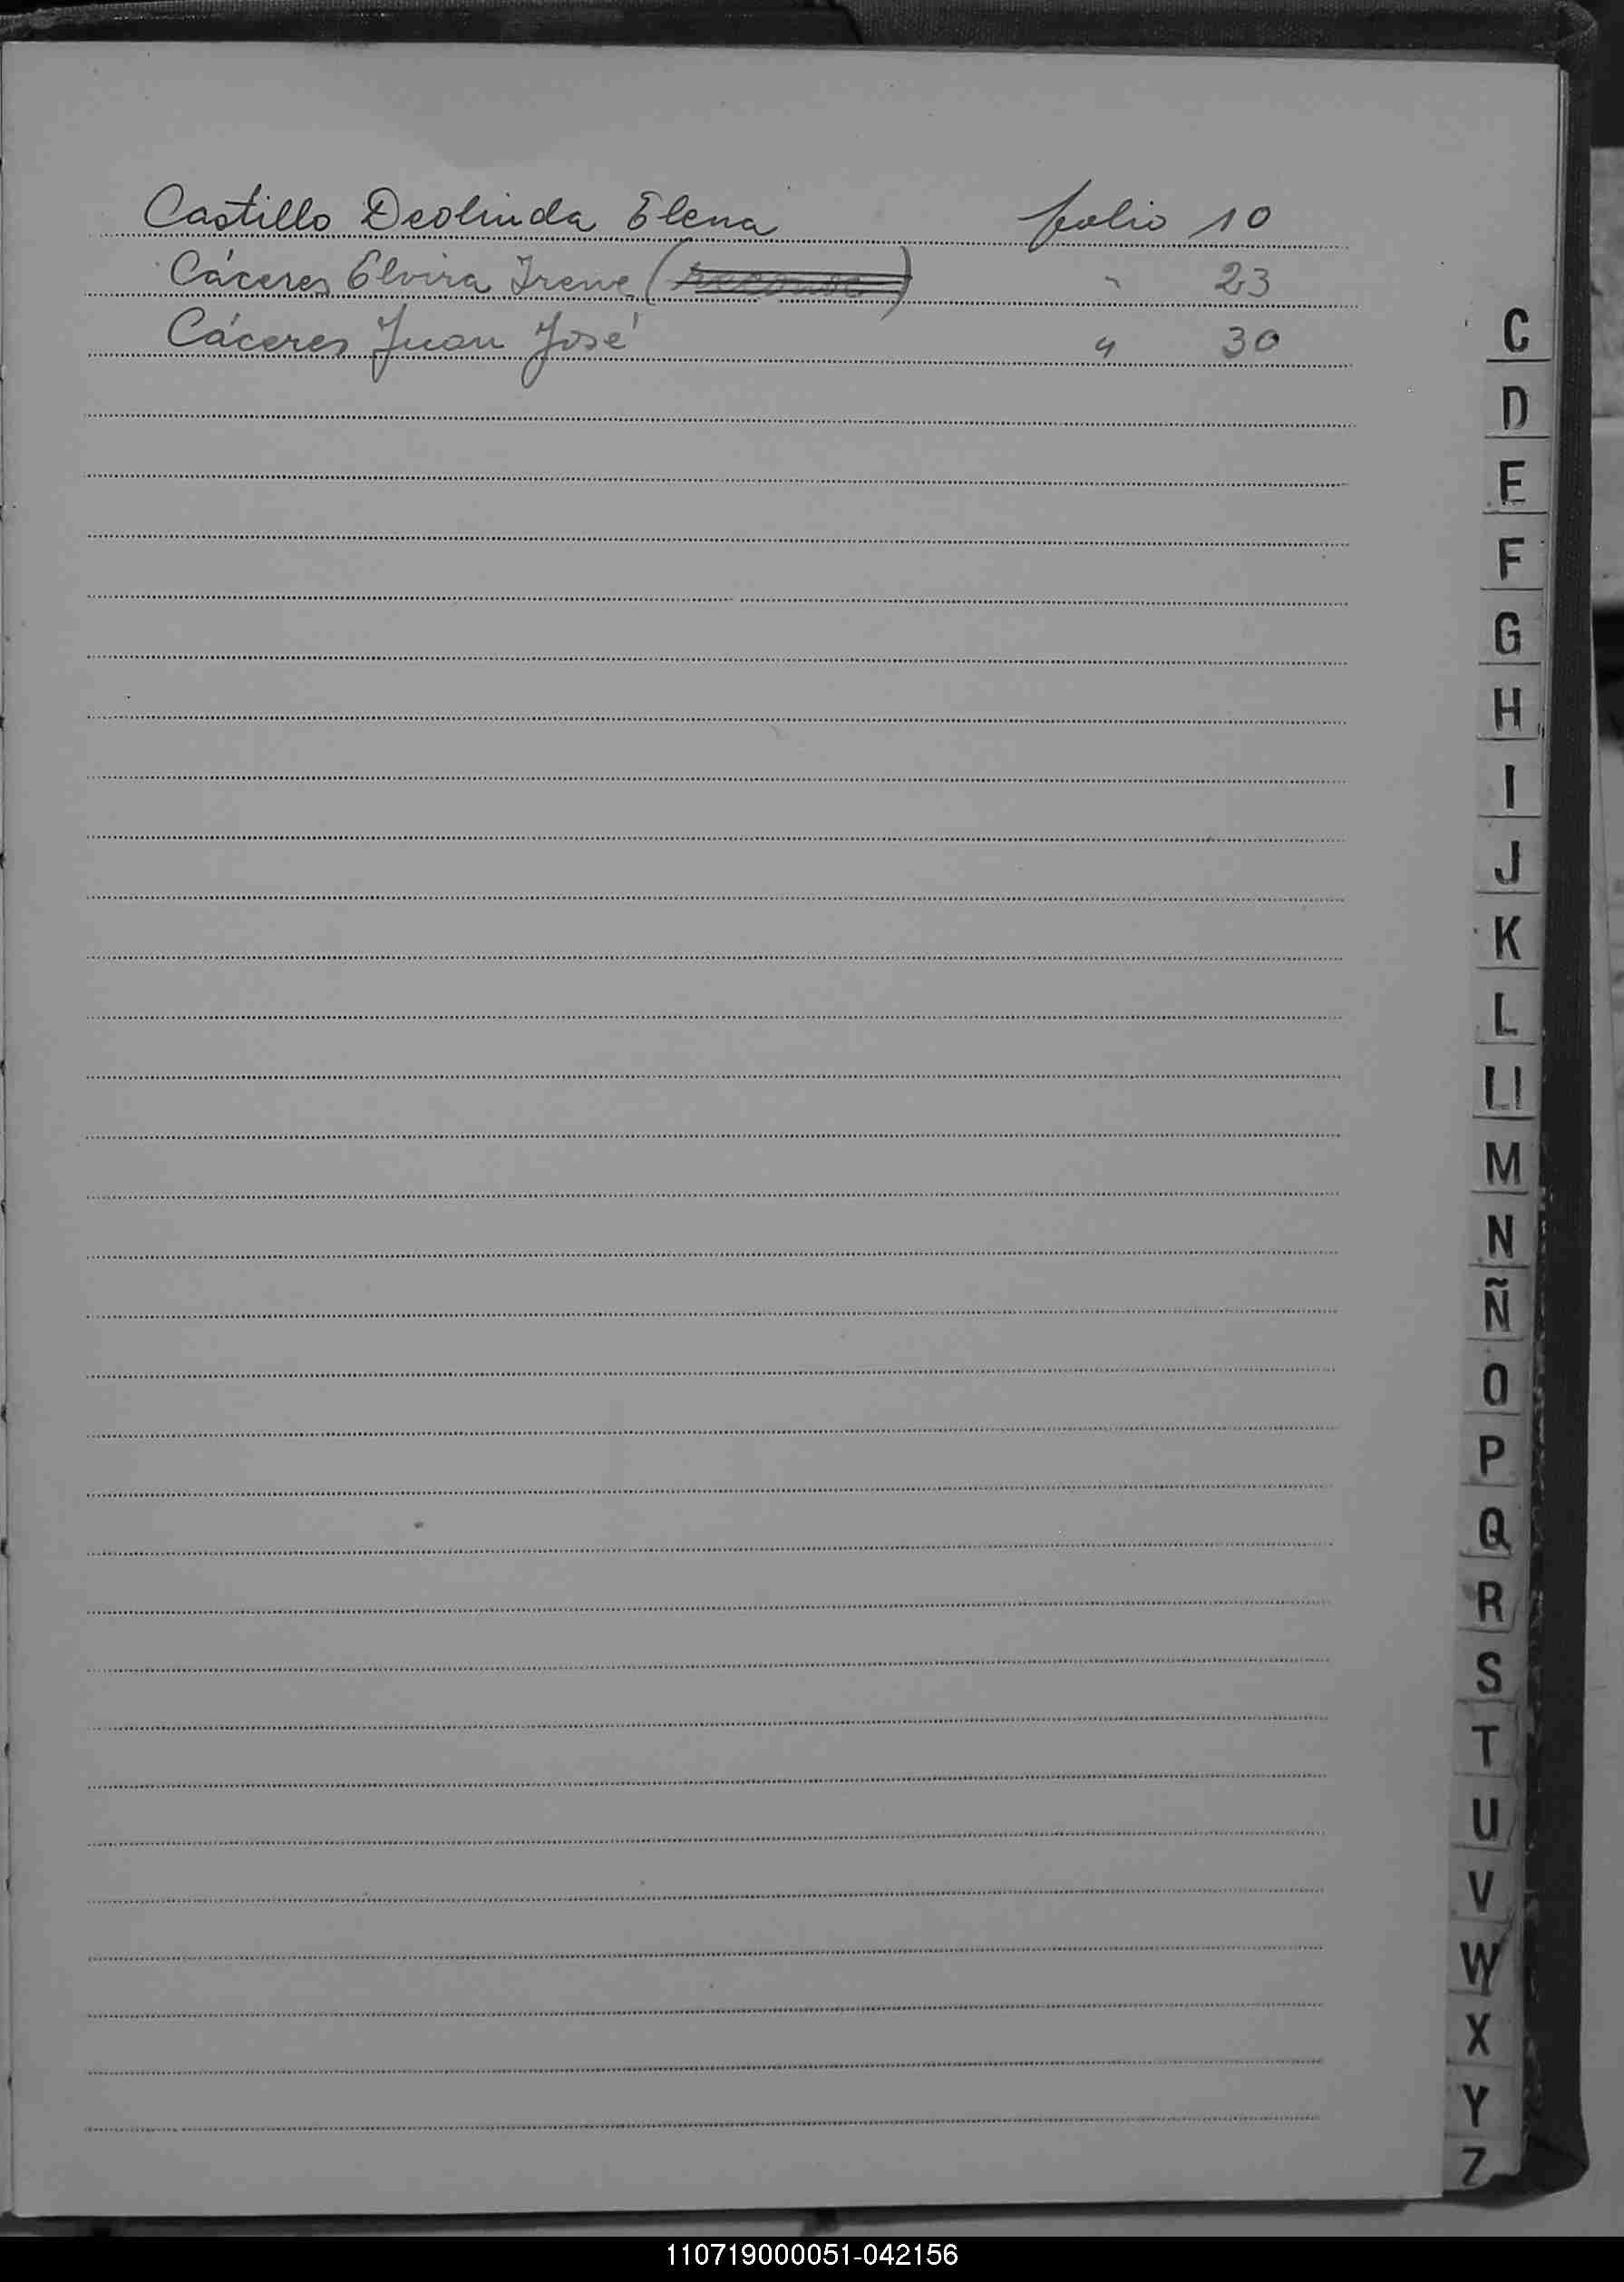 Castillo Deolinda Elena folio 10
Cáceres Elvira Irene ( ) " 23
Cáceres Juan José " 30
C
D
E
F
G
H
I
J
K
L
Ll
M
N
Ñ
O
P
Q
R
S
T
U
V
W
X
Y
Z
110719000051-042156